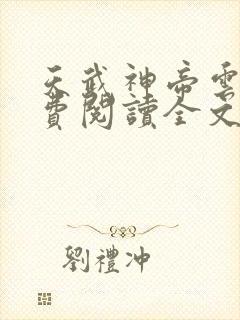 天武神帝雲
費閱讀全文
劉禮沖